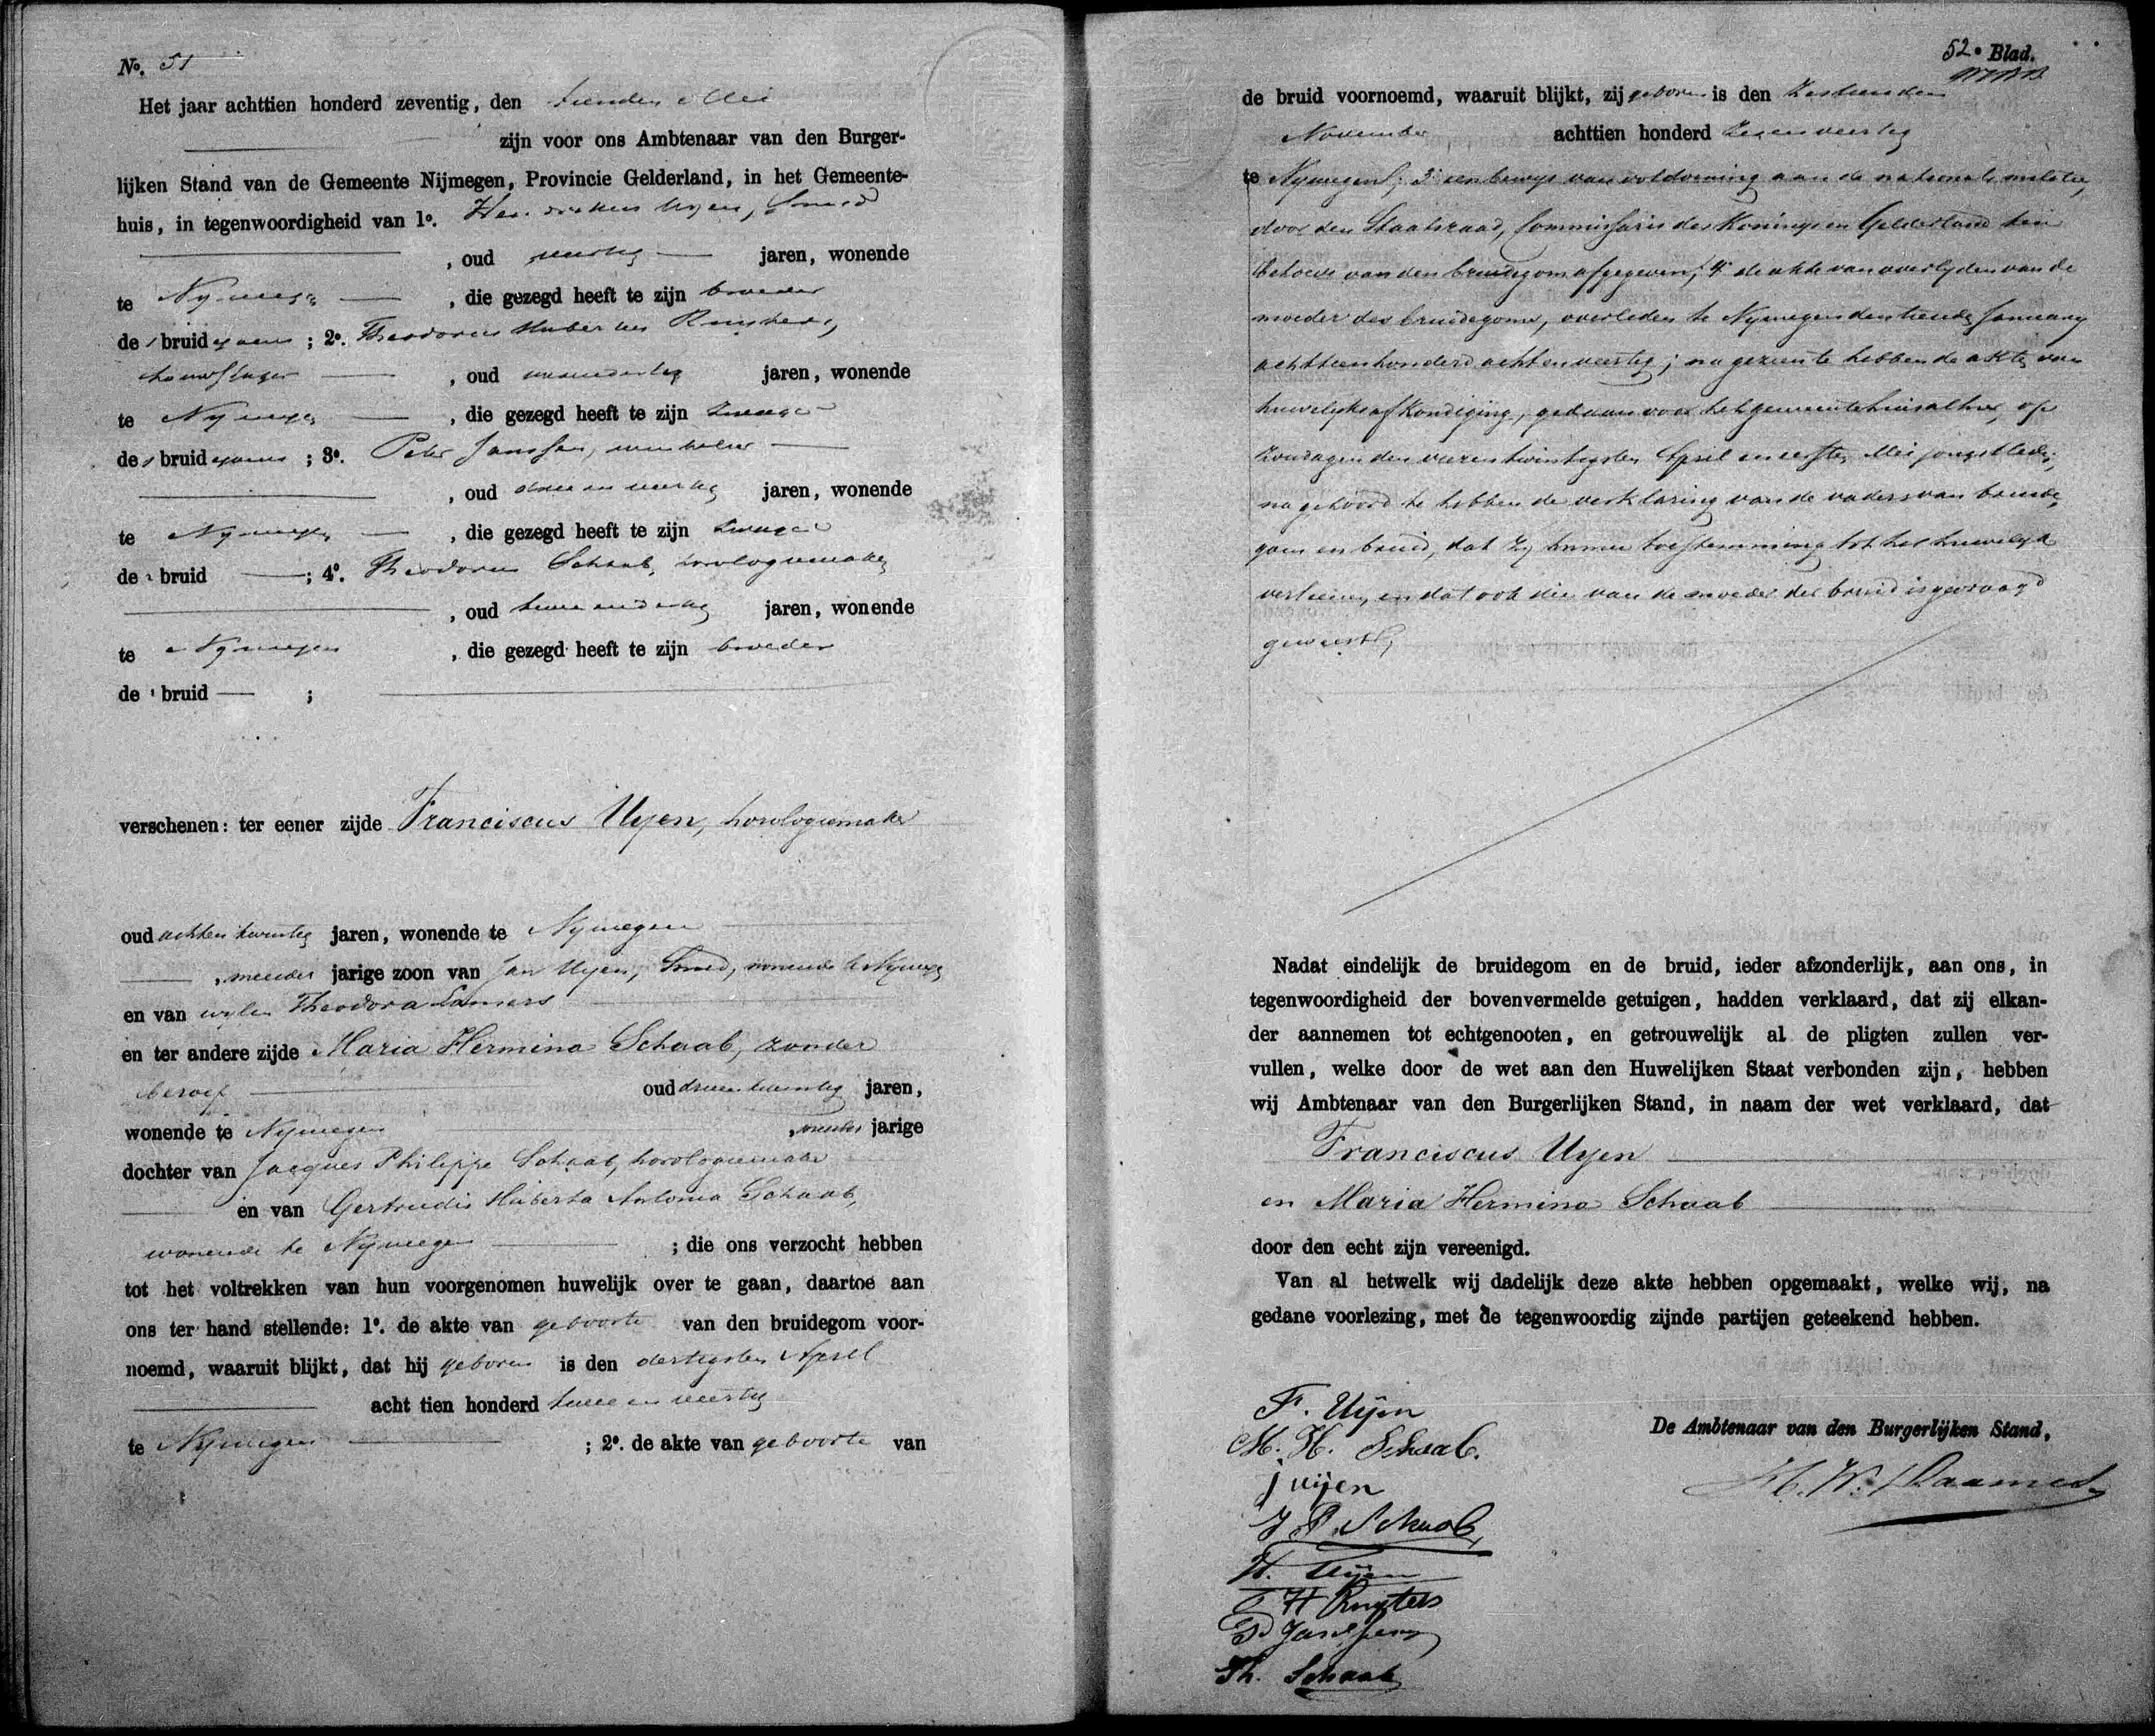 No. 51
Het jaar achttien honderd zeventig, den tienden Mei
zijn voor ons Ambtenaar van den Burger-
lijken Stand van de Gemeente Nijmegen, Provincie Gelderland, in het Gemeente-
huis, in tegenwoordigheid van 1o. Hendrikus Uyen, Smid
, oud veertig jaren, wonende
te Nymegen , die gezegd heeft te zijn broeder
des bruidegoms ; 2o. Theodorus Hubertus Ruyters,
touwslager , oud jaren, wonende
te Nymegen , die gezegd heeft te zijn zwager
des bruidegoms ; 3o. Peter Janssen, winkelier
, oud drie en veertig jaren, wonende
te Nymegen , die gezegd heeft te zijn zwager
der bruid ; 4o. Theodorus Schaab, horologiemaker
, oud twee en dertig jaren, wonende
te Nymegen , die gezegd heeft te zijn broeder
der bruid ;
verschenen: ter eener zijde Franciscus Uyen, horologiemaker
oud achtentwintig jaren, wonende te Nymegen
, meerder jarige zoon van Jan Uyen, Smid, wonende te Nymegen
en van wylen Theodora Lamers
en ter andere zijde Maria Hermina Schaab, zonder
beroep oud drieentwintig jaren,
wonende te Nymegen , meerder jarige
dochter van Jacques Philippe Schaab, horologiemaker
en van Gertrudis Huberta Antonia Schaab,
wonende te Nijmegen ; die ons verzocht hebben
tot het voltrekken van hun voorgenomen huwelijk over te gaan, daartoe aan
ons ter hand stellende: 1o. de akte van geboorte van den bruidegom voor-
noemd, waaruit blijkt, dat hij geboren is den dertigsten April
acht tien honderd twee en veertig
te Nymegen ; 2o. de akte van geboorte van
52e Blad.
de bruid voornoemd, waaruit blijkt, zij geboren is den zestienden
November achttien honderd zesenveertig
te Nymegen; 3o een bewys van voldoening aan de nationale militie,
door den Staatsraad, Commissaris des Konings in Gelderland ten
behoeve van den bruidegom afgegeven; 4o de akte van overlyden van de
moeder des bruidegoms, overleden te Nymegen den tienden January
achttienhonderd achtenveertig; na gezien te hebben de akte van
huwelyksafkondiging, gedaan voor het gemeentehuis alhier, op
Zondagen den vierentwintigsten April en eersten Mei jongstleden,
na gehoord te hebben de verklaring van de vaders van bruide
gom en bruid, dat zy hunne toestemming tot het huwelyk
verleenen, en dat ook die van de moeder der bruid is gevraagd
geweest;
Nadat eindelijk de bruidegom en de bruid, ieder afzonderlijk, aan ons, in
tegenwoordigheid der bovenvermelde getuigen, hadden verklaard, dat zij elkan-
der aannemen tot echtgenooten, en getrouwelijk al de pligten zullen ver-
vullen, welke door de wet aan den Huwelijken Staat verbonden zijn, hebben
wij Ambtenaar van den Burgerlijken Stand, in naam der wet verklaard, dat
Franciscus Uyen
en Maria Hermina Schaab
door den echt zijn vereenigd.
Van al hetwelk wij dadelijk deze akte hebben opgemaakt, welke wij, na
gedane voorlezing, met de tegenwoordig zijnde partijen geteekend hebben.
F. Uijen
M. H. Schaab.
De Ambtenaar van den Burgerlijken Stand,
J uijen
J P. Schaab
H. Uijen
T H Ruyters
P Janssen
Th. Schaab